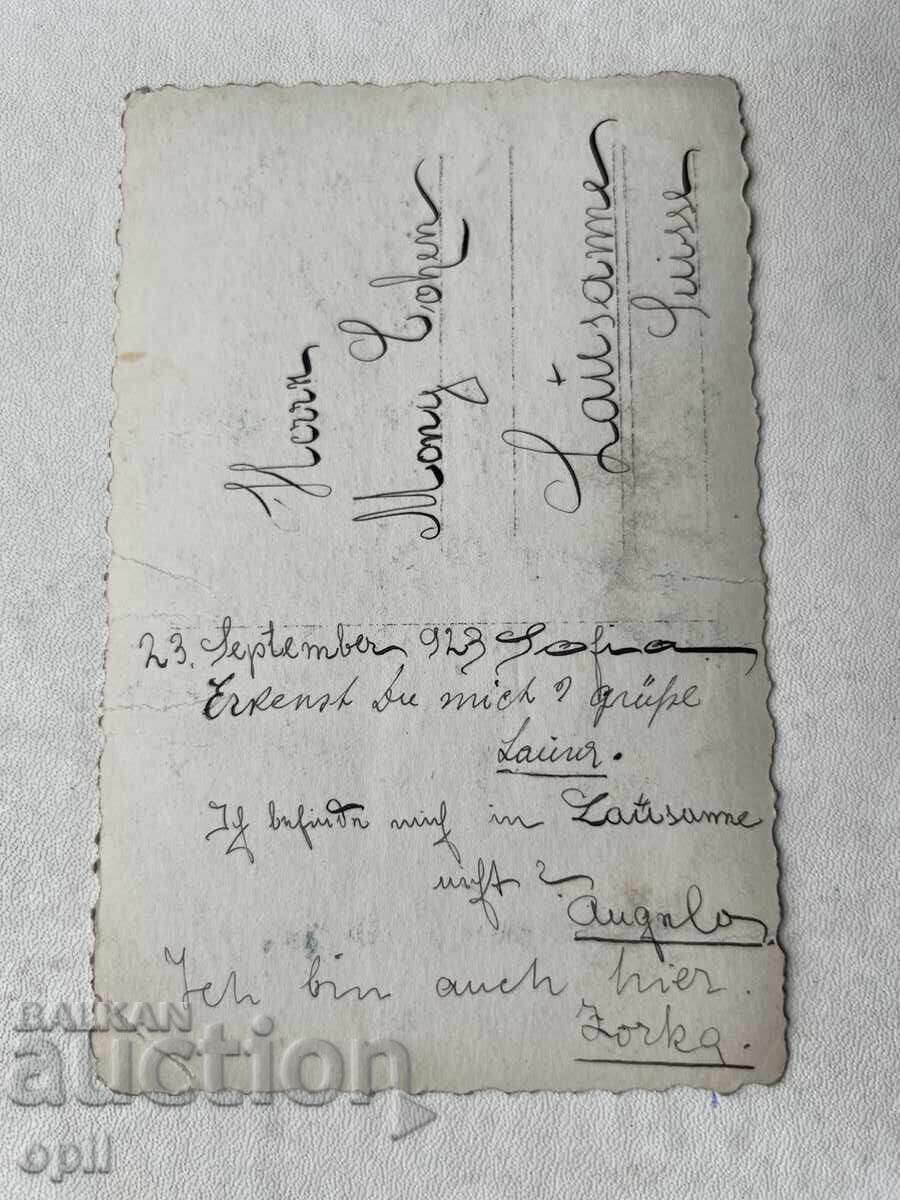 Herrn
Mony Cohen
Laŭsanne
Suisse
23. September 923 Sofia
Erkenst Du mich? grüße
Laŭra.
Ich befinde mich in Laŭsanne
nicht?
Ich bin auch hier.
Zorka.
BALKAN
auction
opil